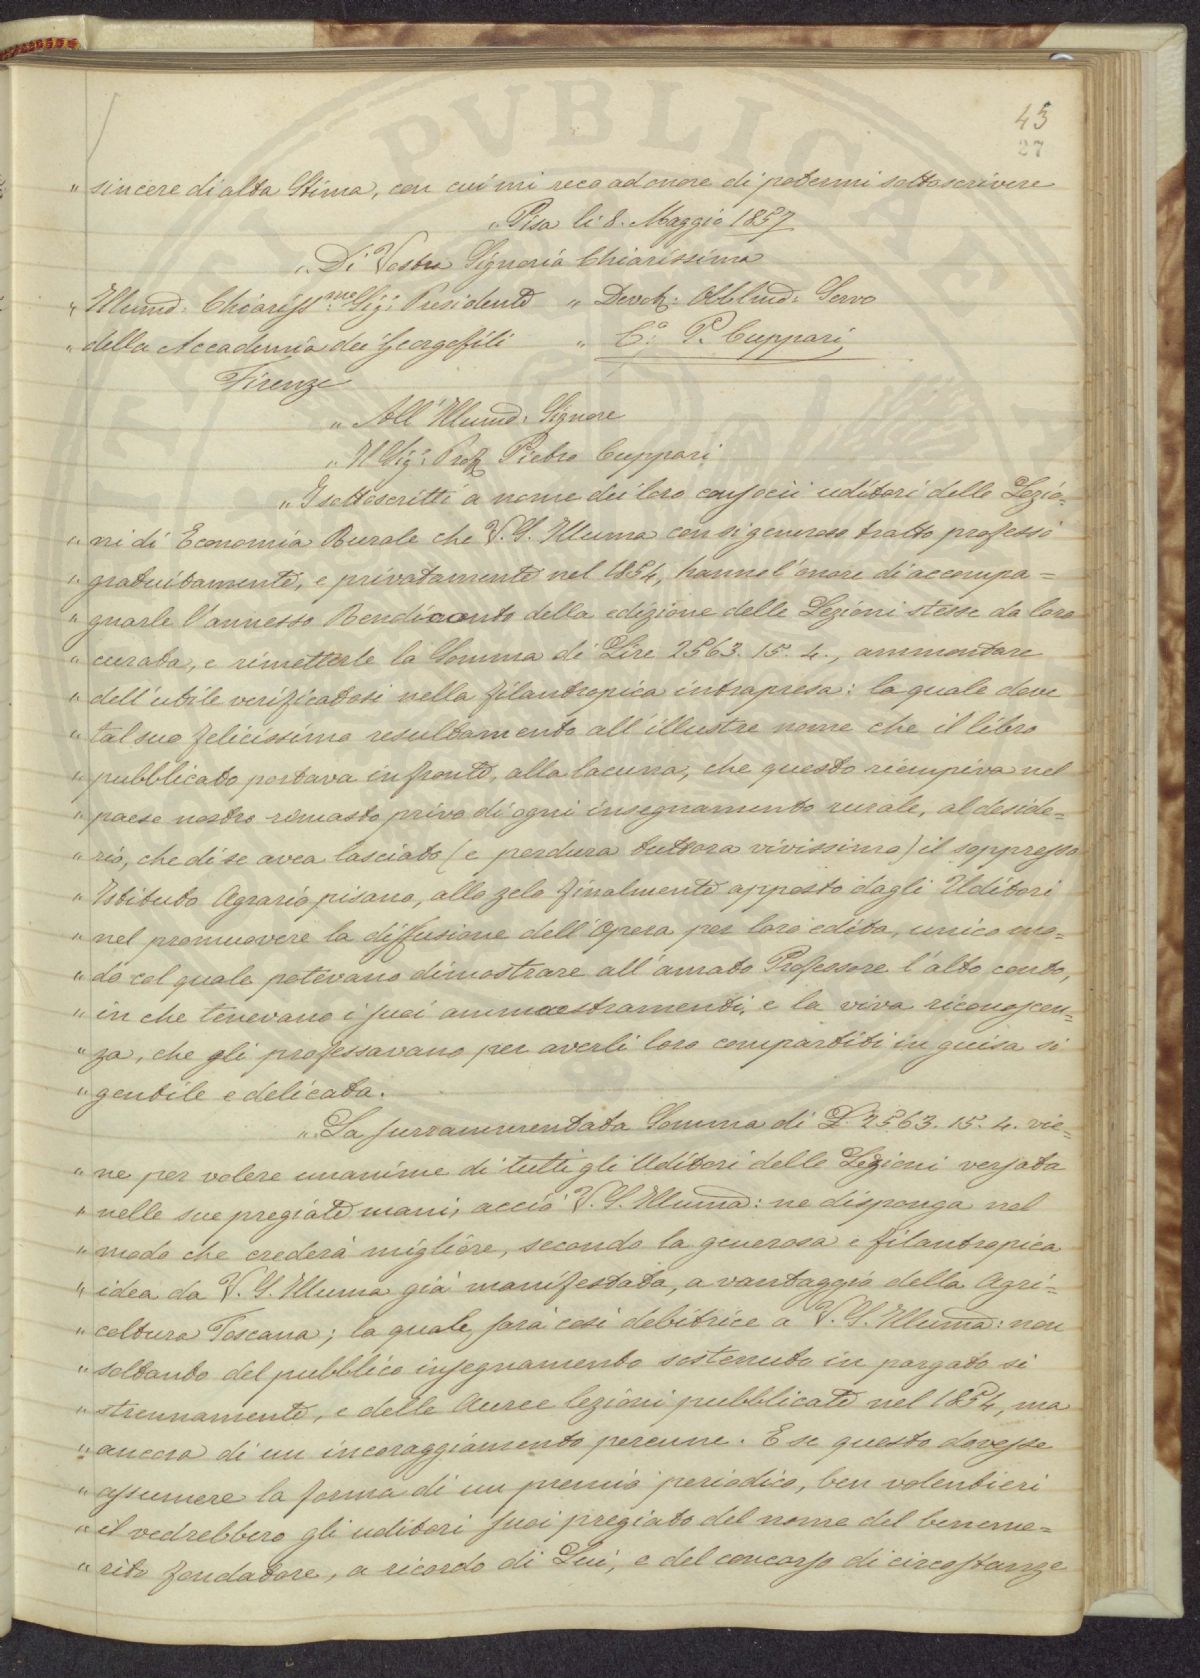 45
27
„ sincere di alta Stima, con cui mi reco ad onore di potermi sottoscrivere
„ Pisa li 8. Maggio 1857
„ Di Vostra Signoria Chiarissima
„ Illumo: Chiariss.mo Sig: Presidente „ Devot: Obblmo: Servo
„ della Accademia dei Georgofili „ C: P. Cuppari
Firenze
„ All' Illumo: Signore
„ Il Sig: Prof Pietro Cuppari
„ I sottoscritti a nome dei loro consocii uditori delle Lezio=
„ ni di Economia Rurale che V. S. Illuma con sì generoso tratto professò
„ gratuitamente, e privatamente nel 1854, hanno l'onore di accompa=
„ gnarle l'annesso Rendiconto della edizione delle Lezioni stesse da loro
„ curata, e rimetterle la Somma di Lire 2563. 15. 4., ammontare
„ dell'utile verificatosi nella filantropica intrapresa: la quale deve
„ tal suo felicissimo resultamento all'illustre nome che il libro
„ pubblicato portava in fronte, alla lacuna, che questo riempiva nel
„ paese nostro rimasto privo di ogni insegnamento rurale, al deside=
„ rio, che di se avea lasciato (e perdura tuttora vivissimo) il soppresso
„ Istituto Agrario pisano, allo zelo finalmente apposto dagli Uditori
„ nel promuovere la diffusione dell'Opera per loro edita, unico mo=
„ do col quale potevano dimostrare all'amato Professore l'alto conto,
„ in che tenevano i suoi ammaestramenti, e la viva riconoscen=
„ za, che gli professavano per averli loro compartiti in guisa sì
„ gentile e delicata.
„ La surrammentata Somma di L. 2563. 15. 4. vie=
„ ne per volere unanime di tutti gli Uditori delle Lezioni versata
„ nelle sue pregiate mani, acciò V. S. Illuma: ne disponga nel
„ modo che crederà migliore, secondo la generosa e filantropica
„ idea da V. S. Illuma già manifestata, a vantaggio della Agri=
„ coltura Toscana; la quale sarà così debitrice a V. S. Illuma: non
„ soltanto del pubblico insegnamento sostenuto in passato sì
„ strenuamente, e delle Auree lezioni pubblicate nel 1854, ma
„ ancora di un incoraggiamento perenne. E se questo dovesse
„ assumere la forma di un premio periodico, ben volentieri
„ il vedrebbero gli uditori suoi pregiato del nome del beneme=
„ rito fondatore, a ricordo di Lui, e del concorso di circostanze